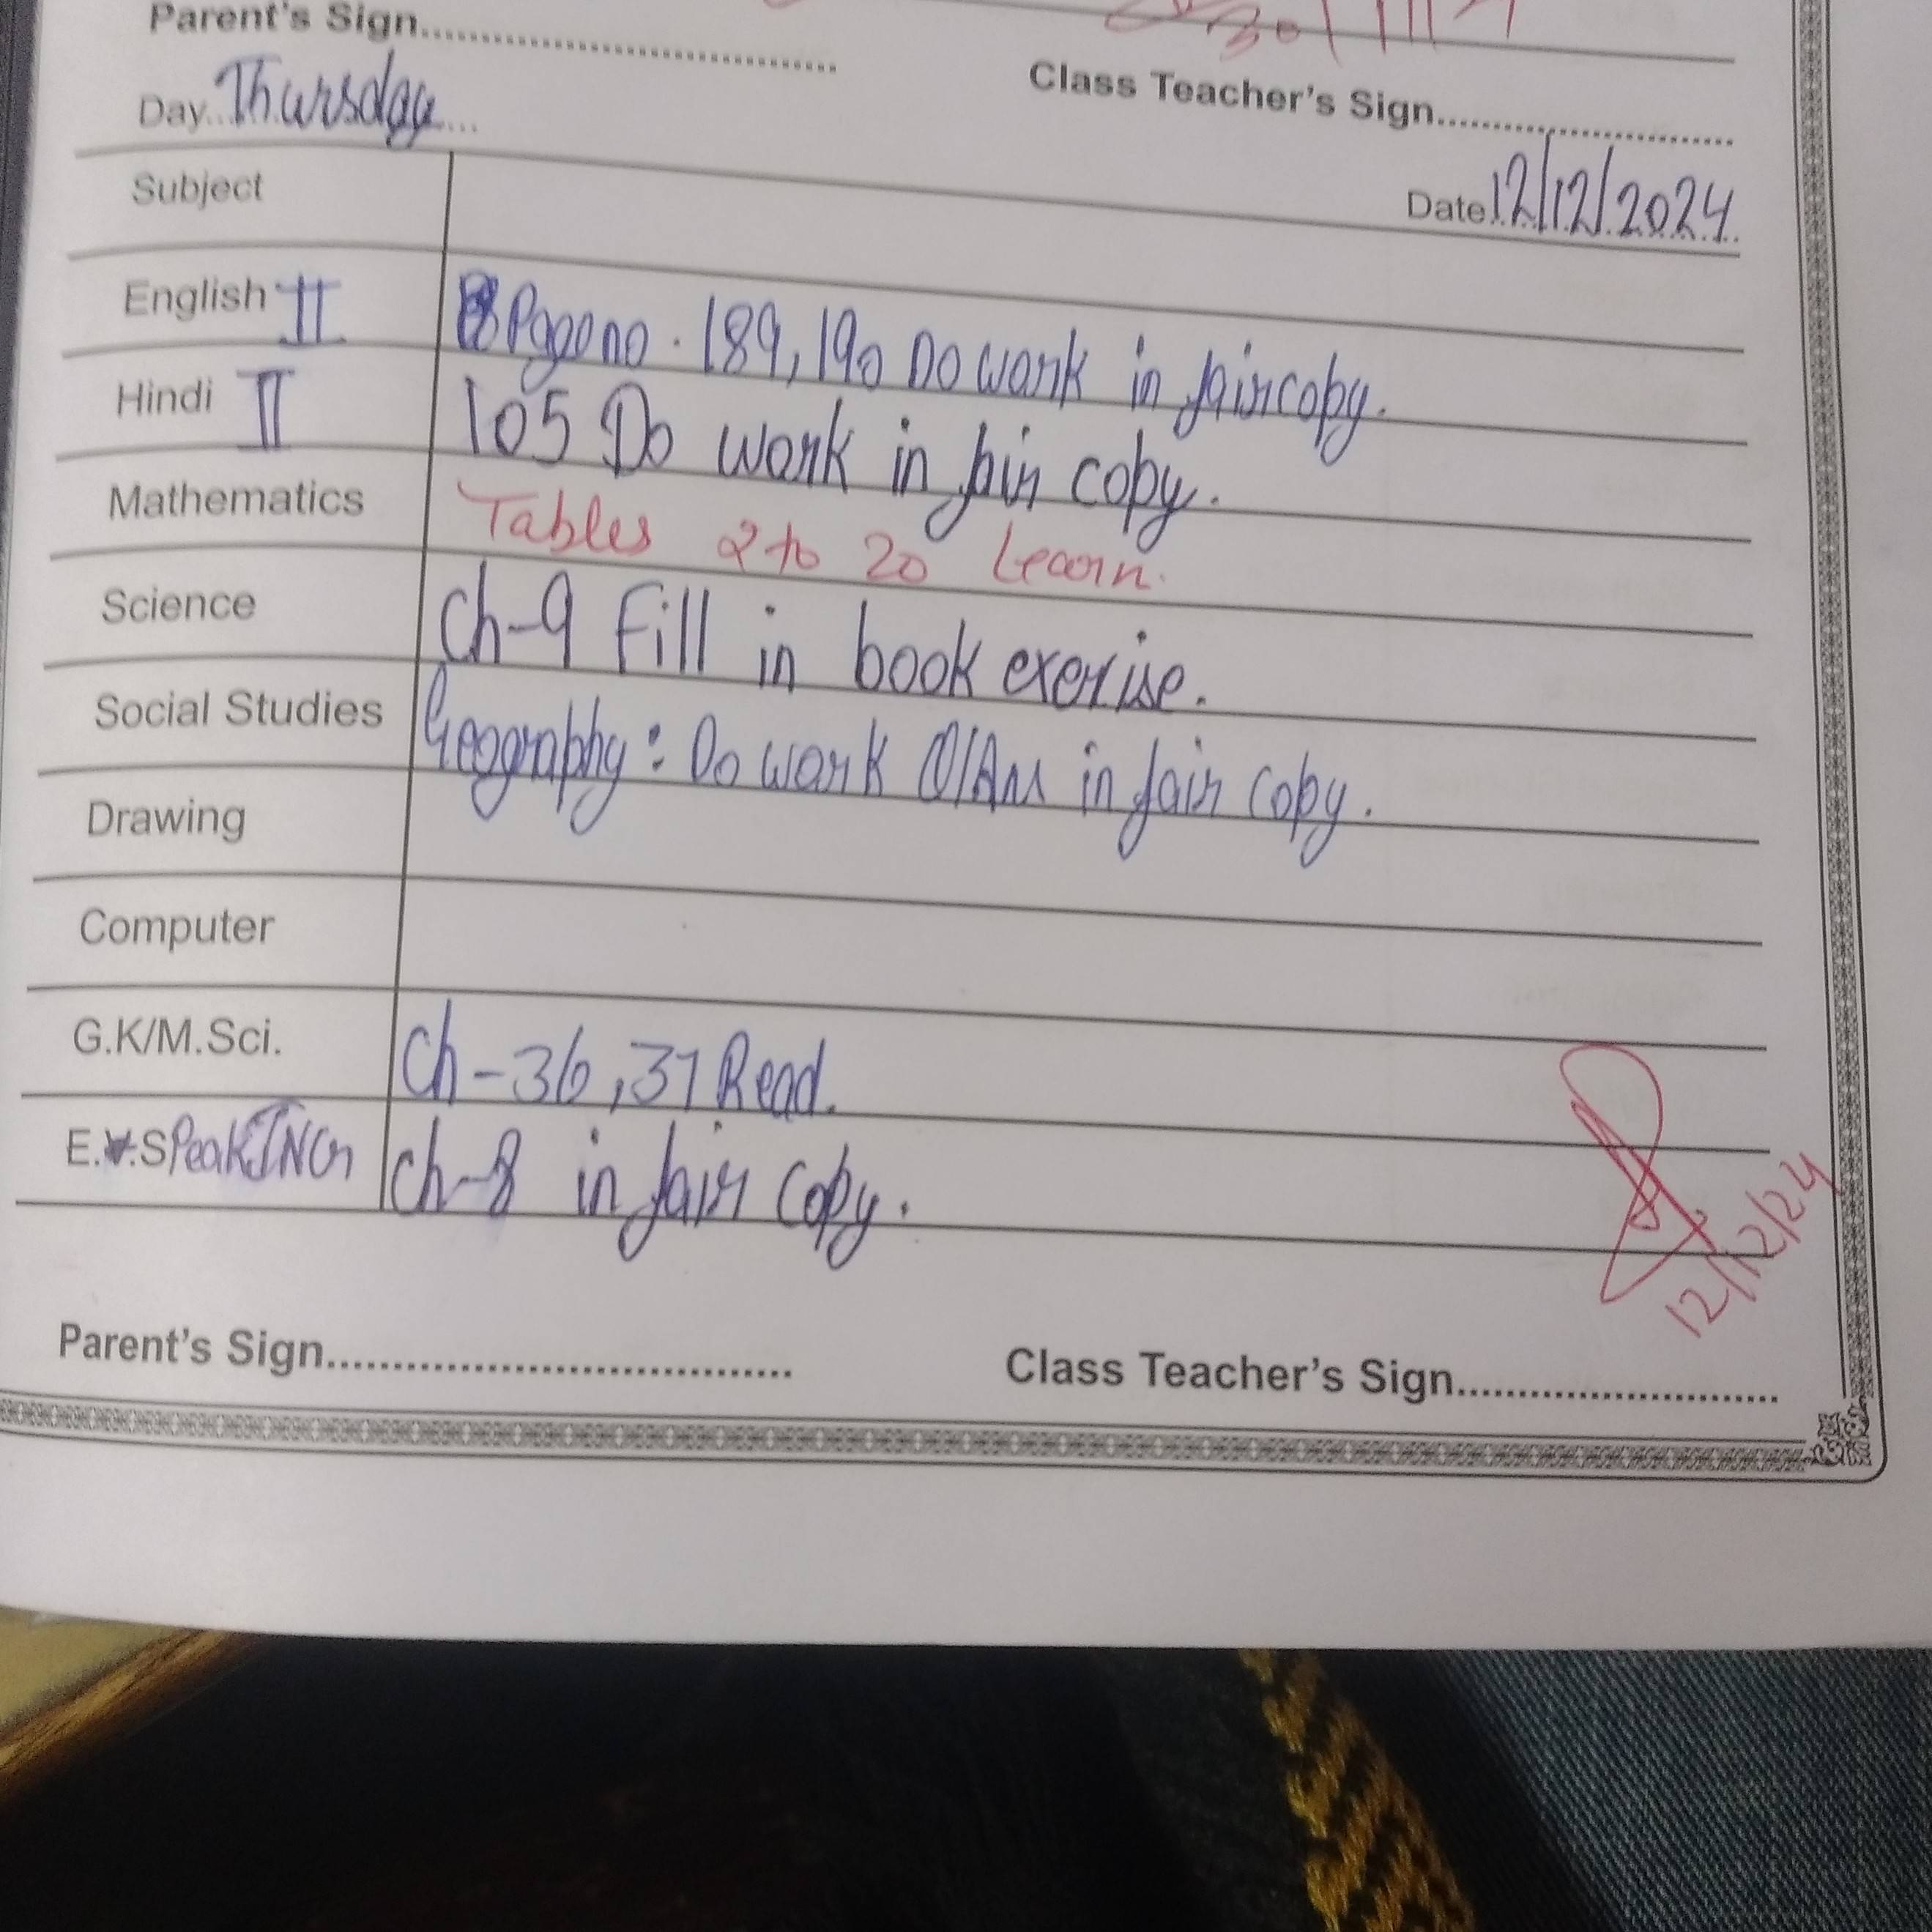 Parent's Sign..........................................
Class Teacher's Sign..............................
Day..Thursday...
Date 12/12/2024
Subject
English II Pageno. 189, 190 Do work in faircopy.
Hindi II 105 Do work in fair copy.
Mathematics Tables 2 to 20 Learn.
Science Ch-9 Fill in book exerise.
Social Studies Geography: Do work Q/Ans in fair copy.
Drawing
Computer
G.K/M.Sci. Ch-36,37 Read.
E.V.SPeakING Ch-8 in fair copy.
12/12/24
Parent's Sign....................................
Class Teacher's Sign..........................